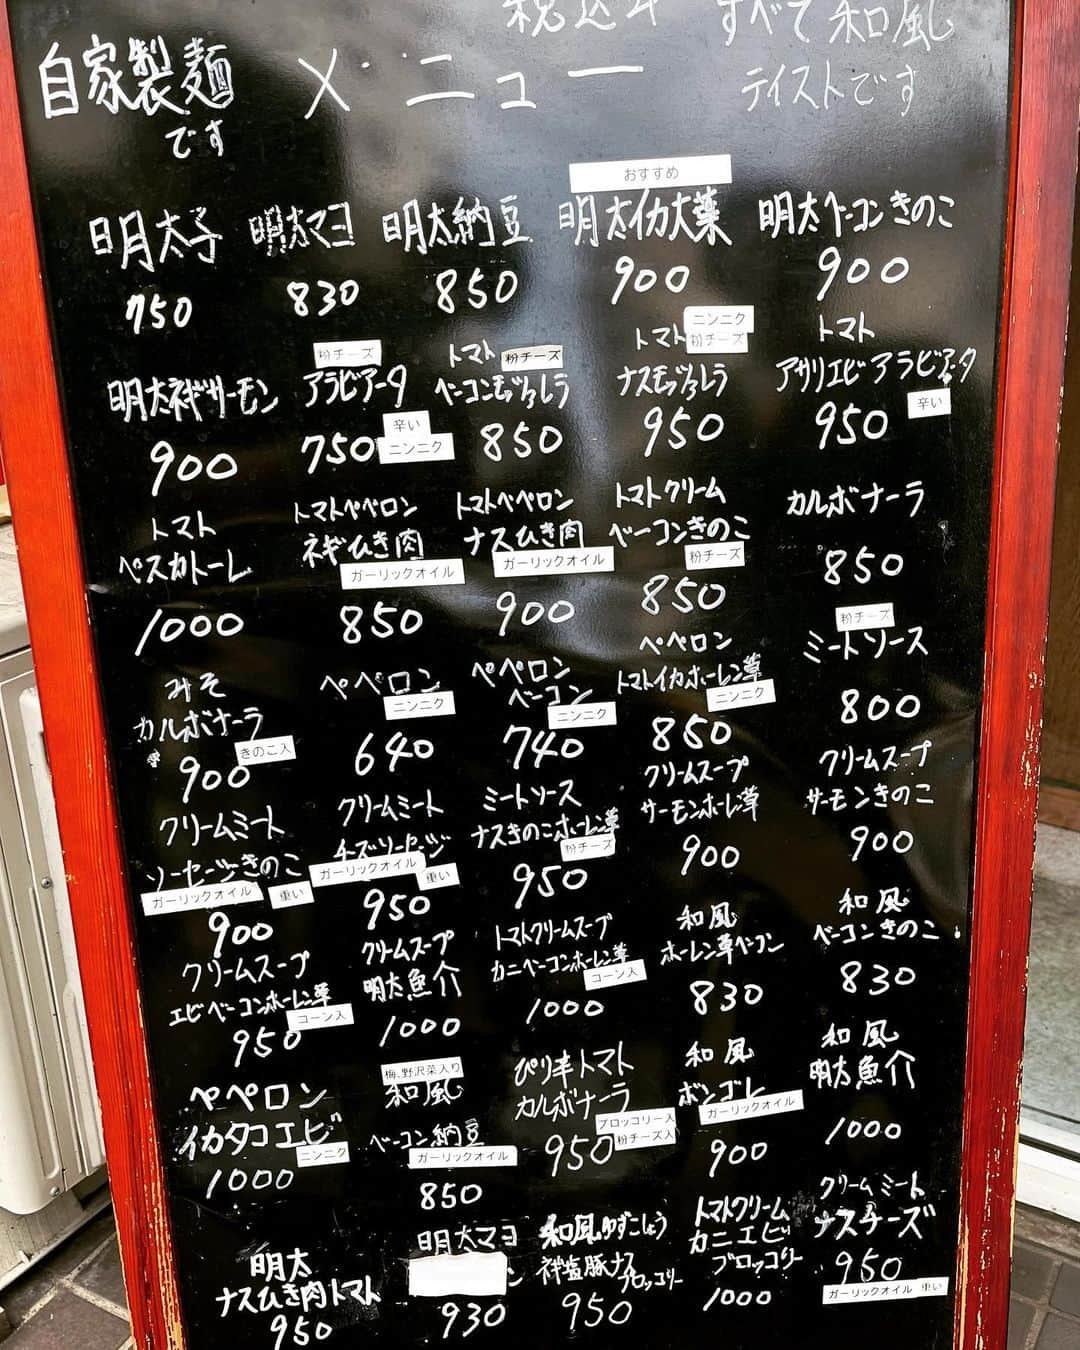 税込み すべて和風
自家製麺 メニュー テイストです
です
おすすめ
明太子 明太マヨ 明太納豆 明太イカ大葉 明太ベーコンきのこ
750 830 850 900 900
粉チーズ トマト 粉チーズ トマト ニンニク 粉チーズ トマト
明太ネギサーモン アラビアータ ベーコンモッツァレラ ナスモッツァレラ アサリエビアラビアータ
900 750 辛い ニンニク 850 950 950 辛い
トマト トマトペペロン トマトペペロン トマトクリーム カルボナーラ
ペスカトーレ ネギひき肉 ナスひき肉 ベーコンきのこ
ガーリックオイル ガーリックオイル 粉チーズ
1000 850 900 850 850
粉チーズ
みそ ペペロン ペペロン ペペロン ミートソース
カルボナーラ ニンニク ベーコン トマトイカホーレン草
きのこ入 ニンニク ニンニク
900 640 740 850 800
クリームミート クリームミート ミートソース クリームスープ クリームスープ
ソーセージきのこ チーズソーセージ ナスきのこホーレン草 サーモンホーレン草 サーモンきのこ
ガーリックオイル 重い ガーリックオイル 重い 粉チーズ
900 950 950 900 900
クリームスープ クリームスープ トマトクリームスープ 和風 和風
エビベーコンホーレン草 明太魚介 カニベーコンホーレン草 ホーレン草ベーコン ベーコンきのこ
コーン入 コーン入
950 1000 1000 830 830
梅、野沢菜入り
ペペロン 和風 ぴり辛トマト 和風 和風
イカタコエビ ベーコン納豆 カルボナーラ ボンゴレ 明太魚介
ニンニク ガーリックオイル ブロッコリー入 粉チーズ入 ガーリックオイル
1000 850 950 900 1000
明太 明太マヨ 和風ゆずこしょう トマトクリーム クリームミート
ナスひき肉トマト ン ネギ塩豚ナス カニエビ ナスチーズ
ブロッコリー ブロッコリー
950 930 950 1000 950
ガーリックオイル 重い